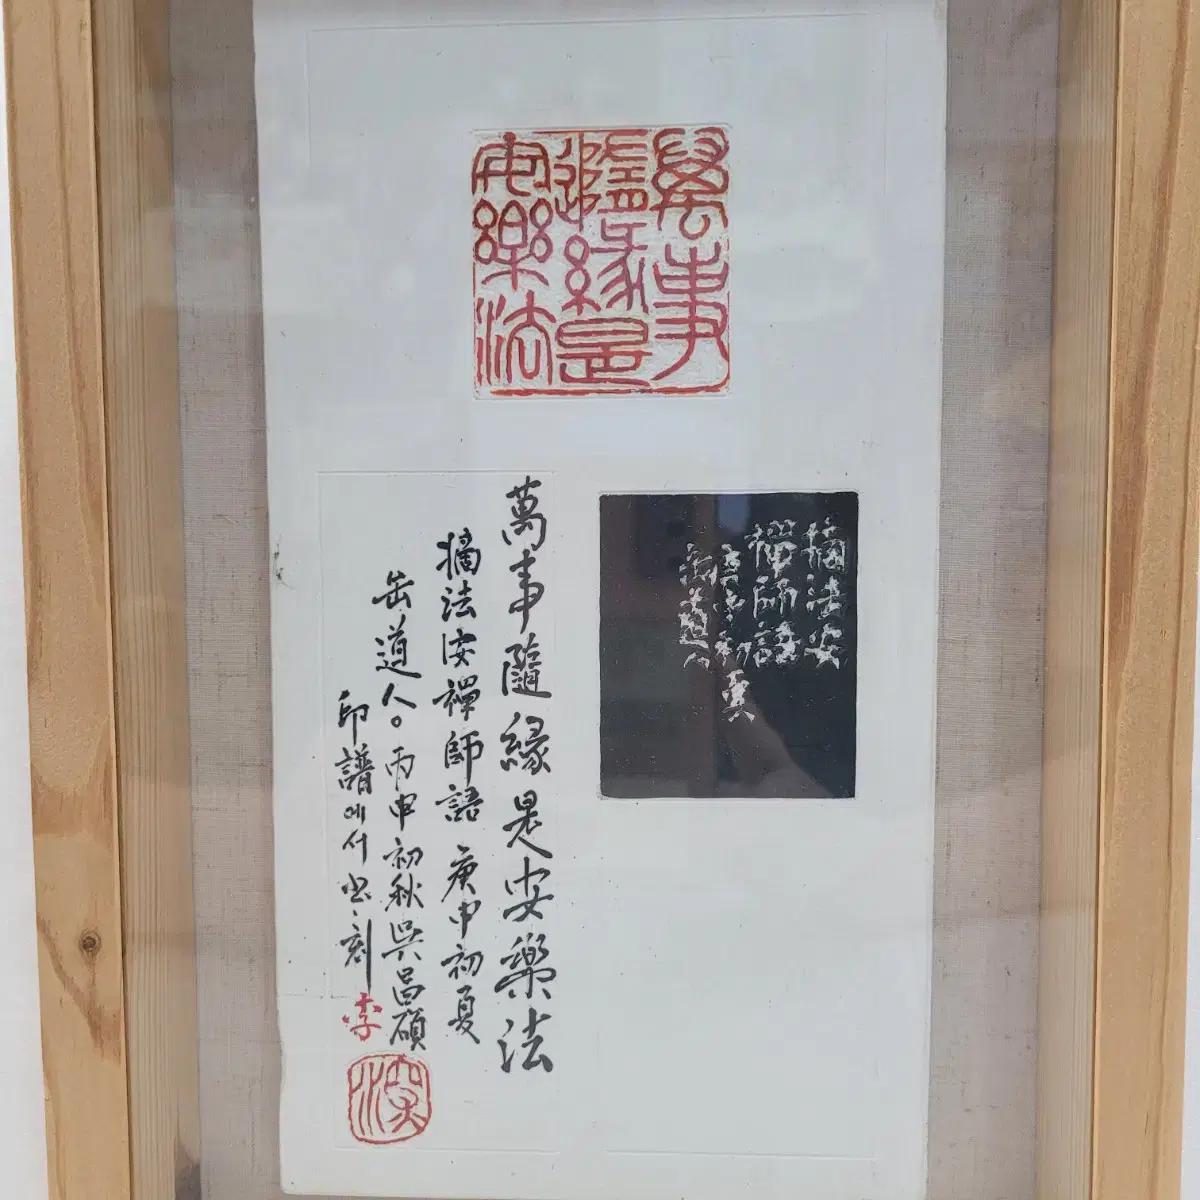 萬事
隨緣是
安樂法
摘法安
禪師語
庚申初夏
缶道人
萬事隨緣是安樂法
摘法安禪師語 庚申初夏
缶道人。丙申初秋 吳昌碩
印譜에서 书刻 李
深